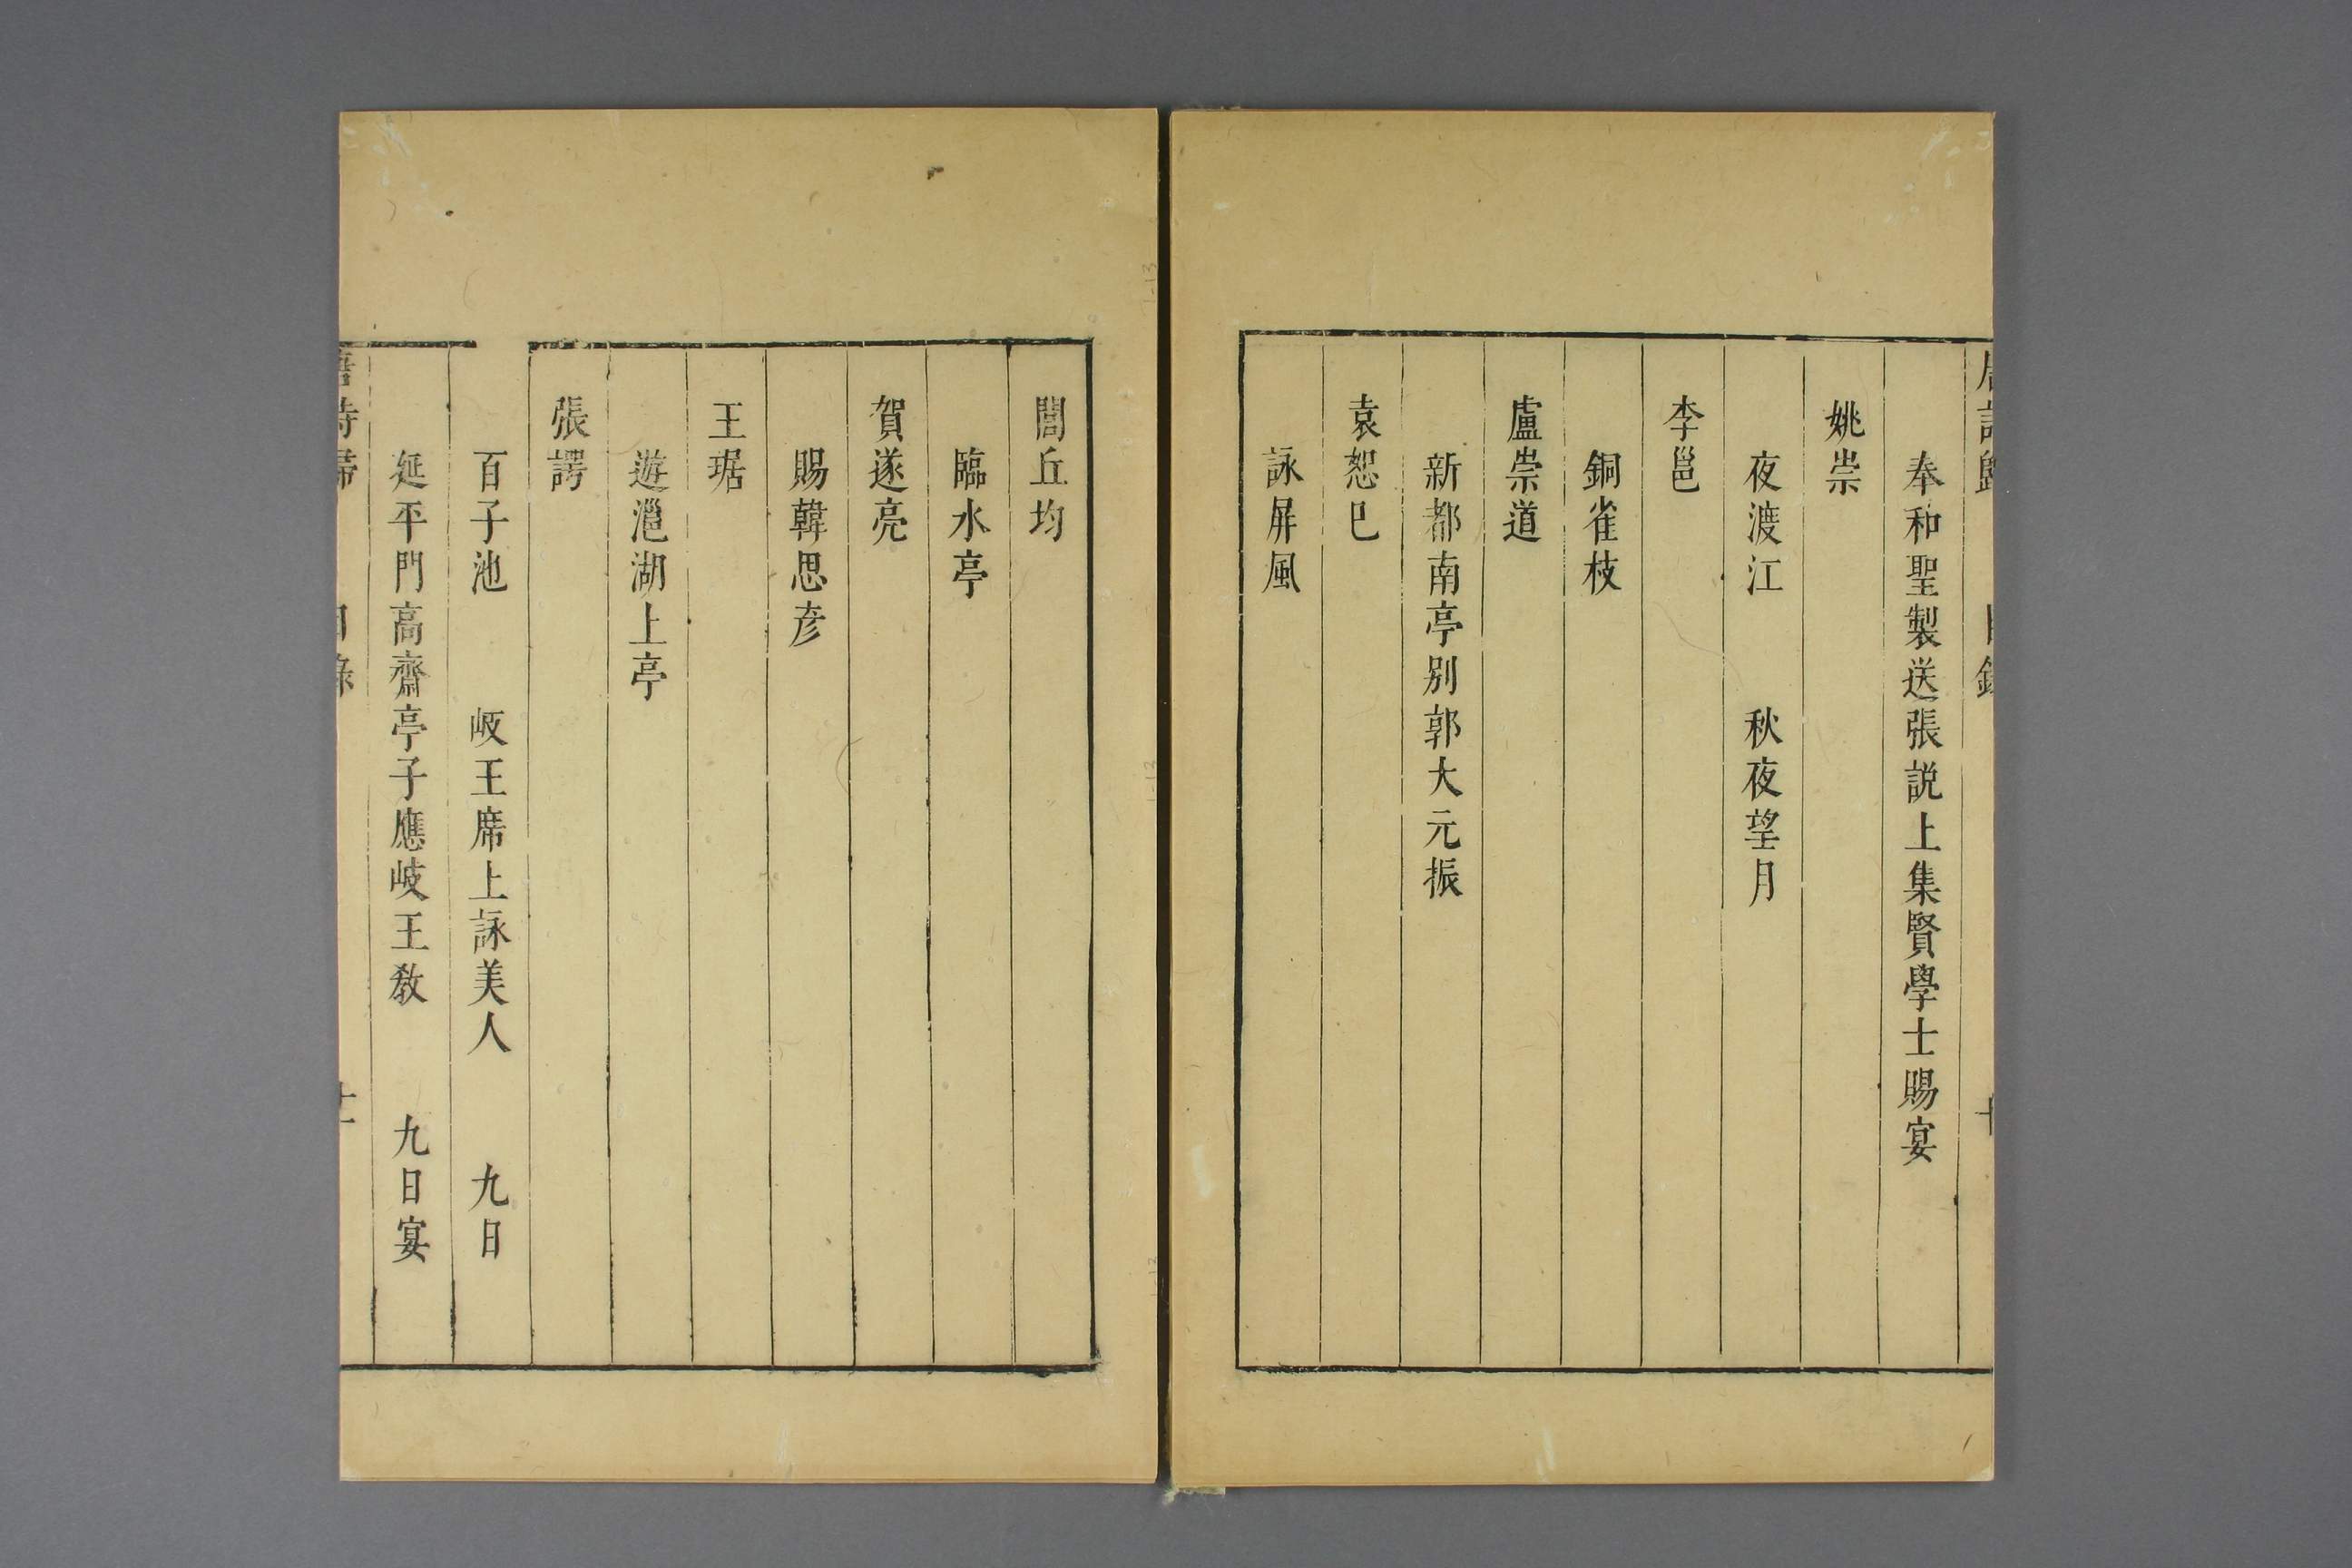 奉和聖製送張説上集賢學士賜宴
姚崇
夜渡江　秋夜望月
李邕
銅雀枝
盧崇道
新都南亭别郭大元振
袁恕已
詠屏風
閭丘均
臨水亭
賀遂亮
賜韓思彦
王琚
遊灉湖上亭
張諤
百子池　岐王席上詠美人　九日
延平門高齋亭子應岐王教　九日宴
唐詩歸　目錄